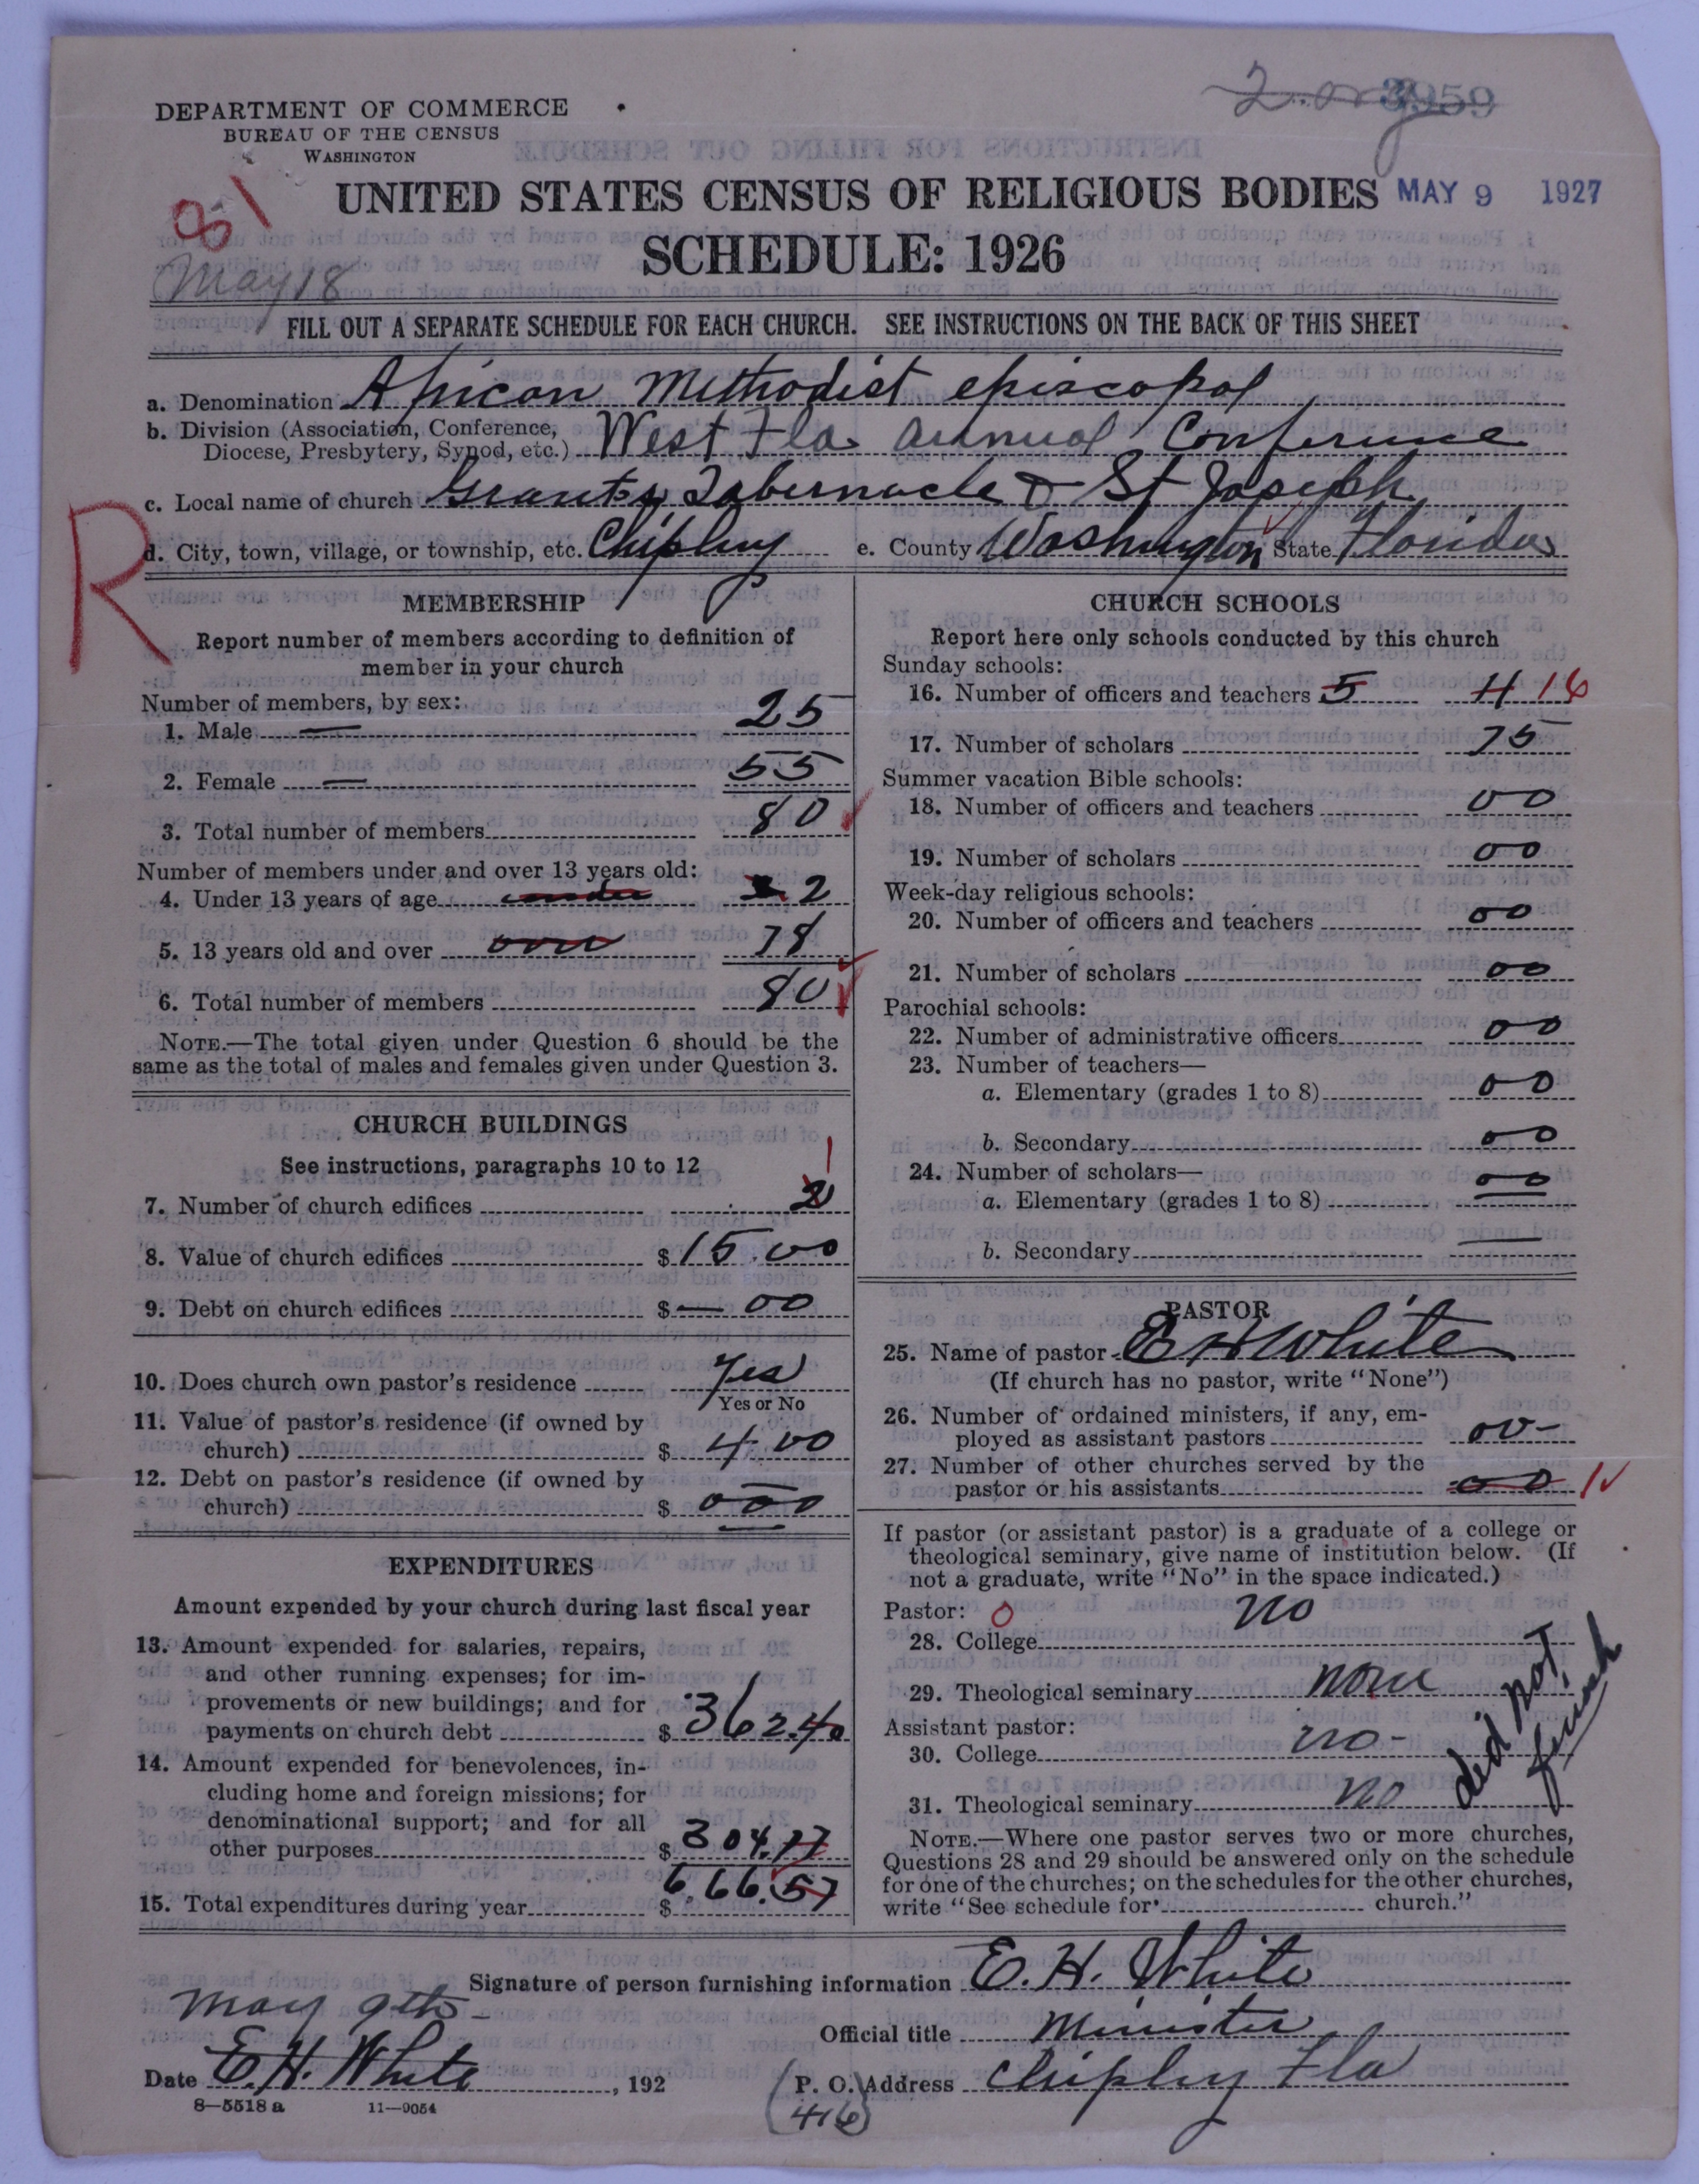 2 org 3959
DEPARTMENT OF COMMERCE
BUREAU OF THE CENSUS
WASHINGTON
81
UNITED STATES CENSUS OF RELIGIOUS BODIES MAY 9 1927
SCHEDULE: 1926
May 18
FILL OUT A SEPARATE SCHEDULE FOR EACH CHURCH. SEE INSTRUCTIONS ON THE BACK OF THIS SHEET
a. Denomination African Methodist episcopal
b. Division (Association, Conference,
Diocese, Presbytery, Synod, etc.) West Fla annual Conference
c. Local name of church Grants Tabernacle & St Joseph
R
d. City, town, village, or township, etc. Chipley e. County Washington State Florida
MEMBERSHIP
Report number of members according to definition of
member in your church
Number of members, by sex:
1. Male — 25
2. Female — 55
3. Total number of members 80
Number of members under and over 13 years old:
4. Under 13 years of age under 2
5. 13 years old and over over 78
6. Total number of members 80
NOTE.—The total given under Question 6 should be the
same as the total of males and females given under Question 3.
CHURCH BUILDINGS
See instructions, paragraphs 10 to 12
1
7. Number of church edifices 2
8. Value of church edifices $ 15.00
9. Debt on church edifices $ — 00
10. Does church own pastor's residence Yes
Yes or No
11. Value of pastor's residence (if owned by
church) $ 4.00
12. Debt on pastor's residence (if owned by
church) $ 000
EXPENDITURES
Amount expended by your church during last fiscal year
13. Amount expended for salaries, repairs,
and other running expenses; for im-
provements or new buildings; and for
payments on church debt $ 362.40
14. Amount expended for benevolences, in-
cluding home and foreign missions; for
denominational support; and for all
other purposes $ 304.17
15. Total expenditures during year $ 6.66.57
CHURCH SCHOOLS
Report here only schools conducted by this church
Sunday schools:
16. Number of officers and teachers 5 11 16
17. Number of scholars 75
Summer vacation Bible schools:
18. Number of officers and teachers 00
19. Number of scholars 00
Week-day religious schools:
20. Number of officers and teachers 00
21. Number of scholars 00
Parochial schools:
22. Number of administrative officers 00
23. Number of teachers—
a. Elementary (grades 1 to 8) 00
b. Secondary 00
24. Number of scholars—
a. Elementary (grades 1 to 8) 00
b. Secondary —
PASTOR
25. Name of pastor E H White
(If church has no pastor, write "None")
26. Number of ordained ministers, if any, em-
ployed as assistant pastors 00-
27. Number of other churches served by the
pastor or his assistants 00 1
If pastor (or assistant pastor) is a graduate of a college or
theological seminary, give name of institution below. (If
not a graduate, write "No" in the space indicated.)
Pastor: 0
28. College no
29. Theological seminary none
Assistant pastor:
30. College no-
31. Theological seminary no
did not finish
NOTE.—Where one pastor serves two or more churches,
Questions 28 and 29 should be answered only on the schedule
for one of the churches; on the schedules for the other churches,
write "See schedule for church."
Signature of person furnishing information E. H. White
may 9th
Official title Minister
Date E. H. White, 192
P. O. Address Chipley Fla
8—5518 a 11—9054
(416)